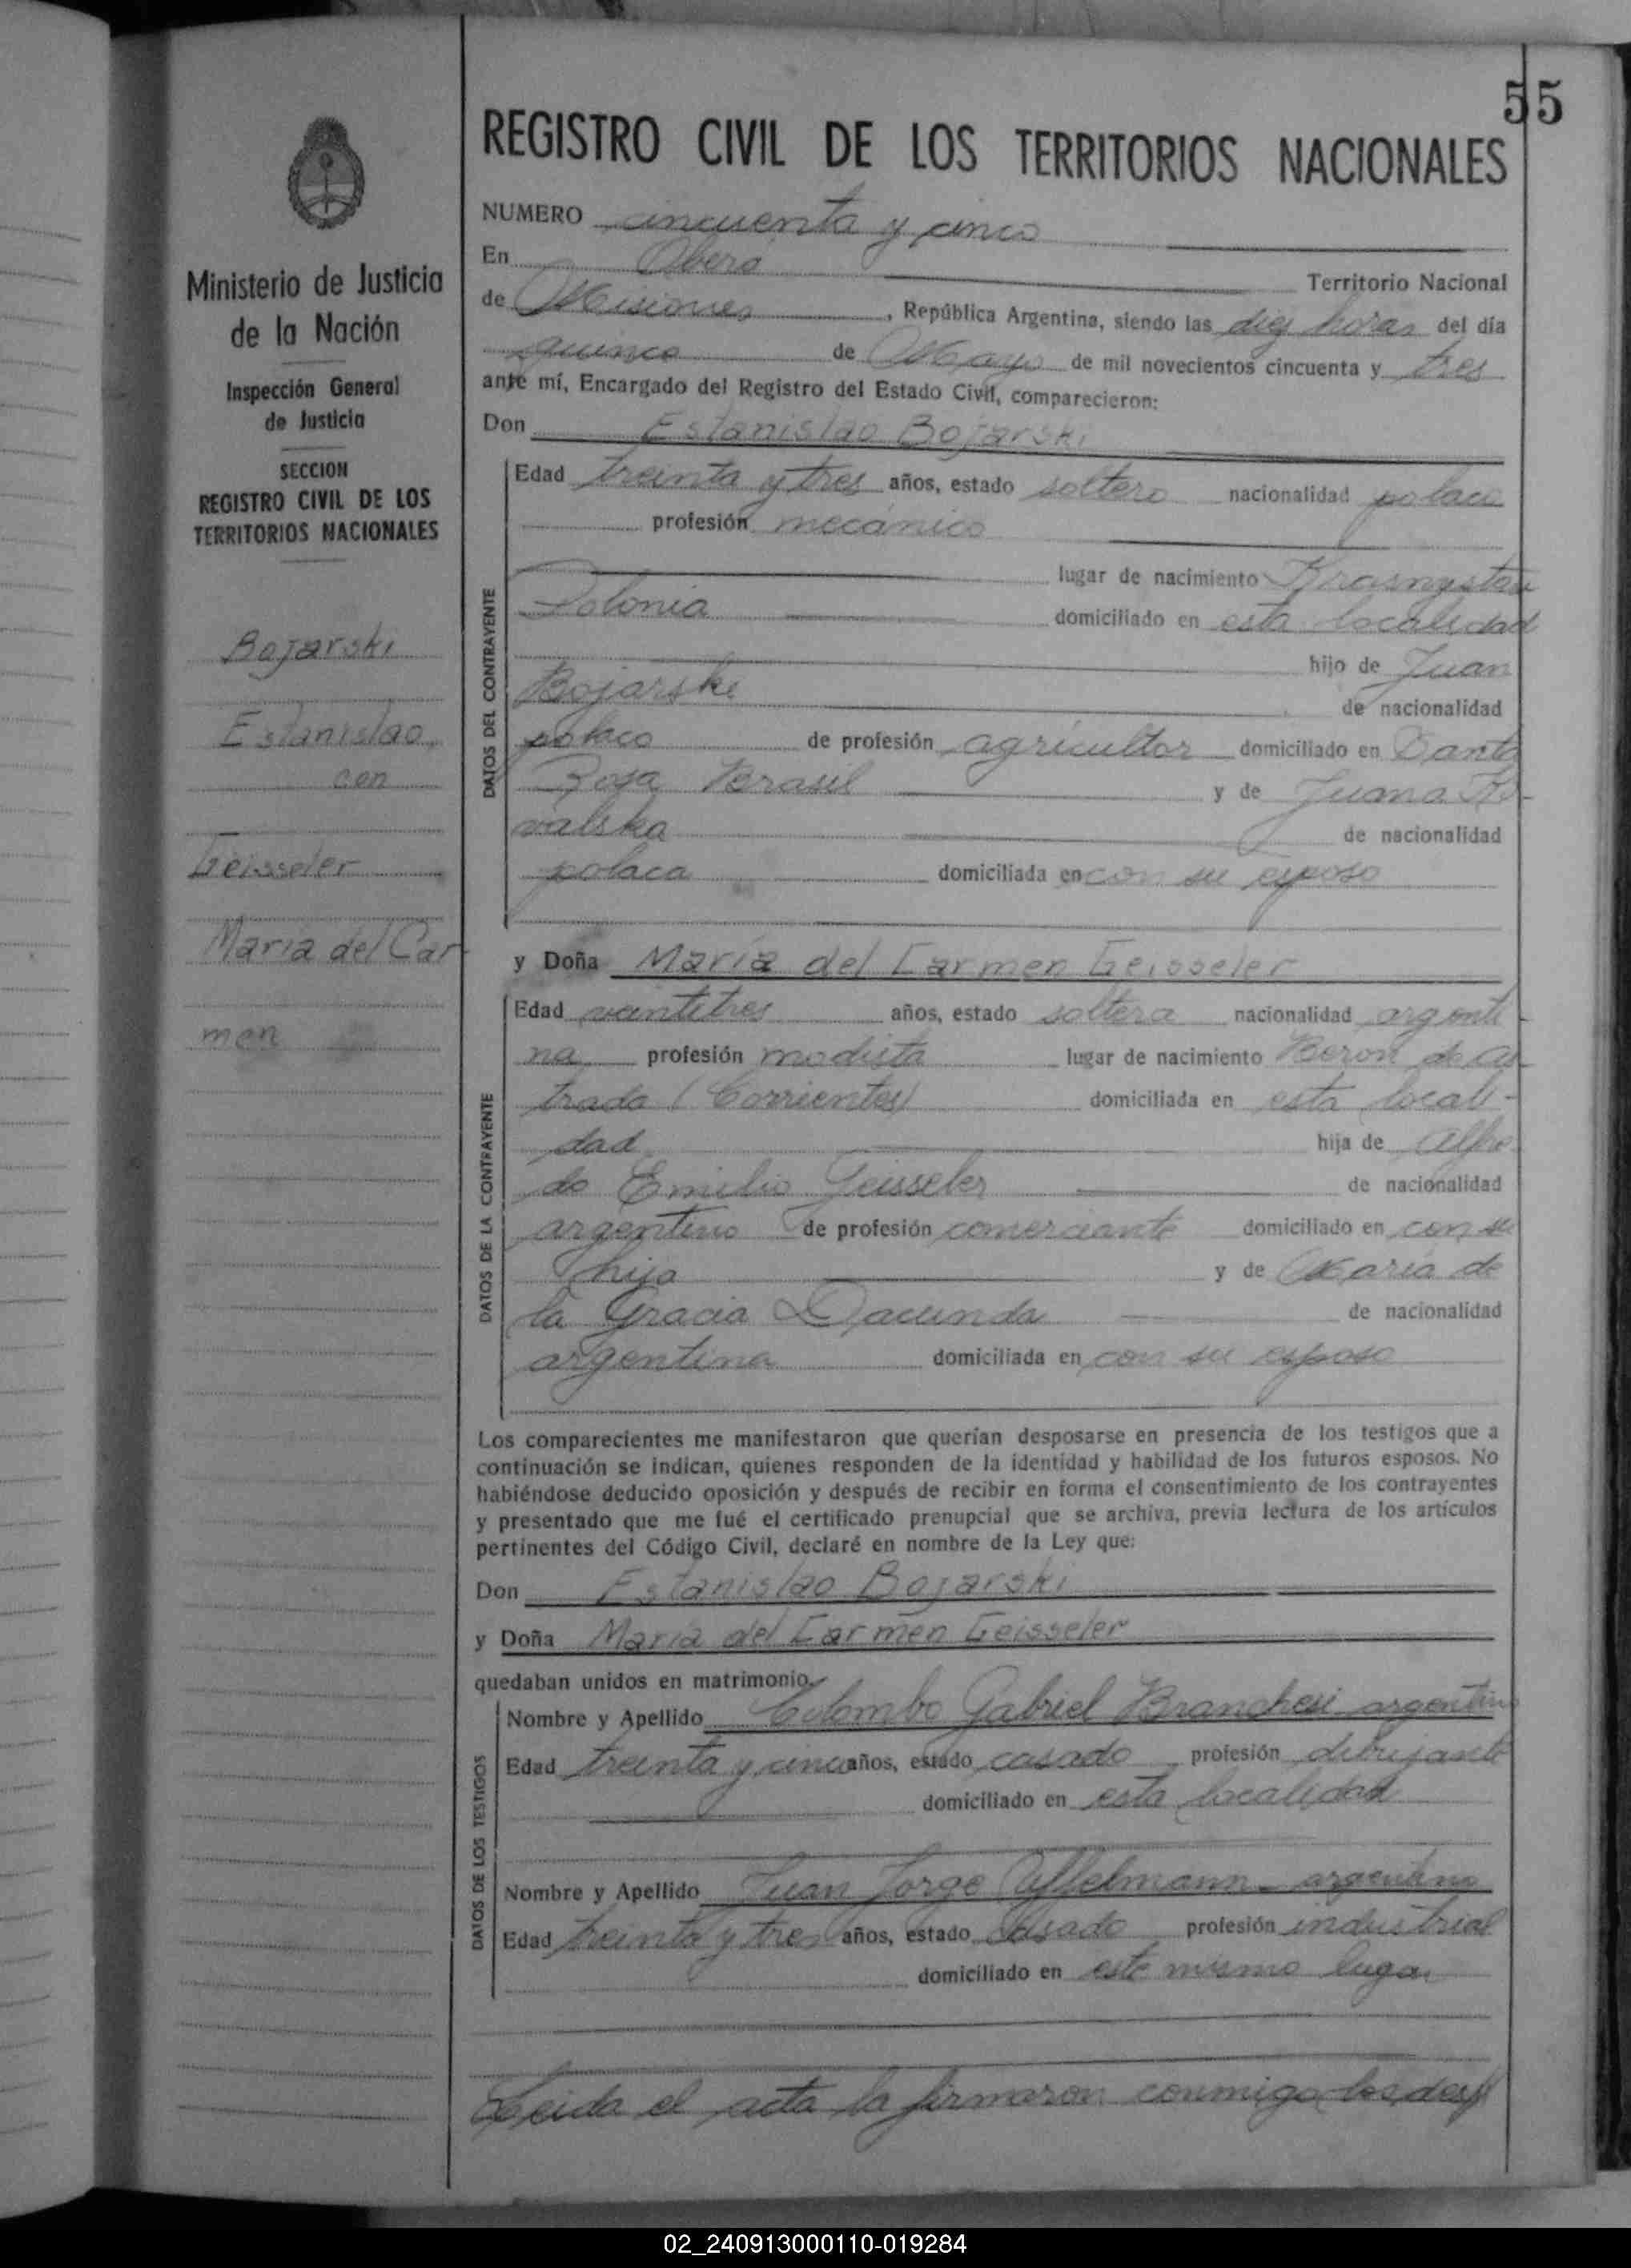 55
REGISTRO CIVIL DE LOS TERRITORIOS NACIONALES
Ministerio de Justicia
de la Nación
Inspección General
de Justicia
SECCION
REGISTRO CIVIL DE LOS
TERRITORIOS NACIONALES
Bojarski
Estanislao
con
Geisseler
María del Car
men
NUMERO cincuenta y cinco
En Oberá Territorio Nacional
de Misiones, República Argentina, siendo las diez horas del día
quince de Mayo de mil novecientos cincuenta y tres
ante mí, Encargado del Registro del Estado Civil, comparecieron:
Don Estanislao Bojarski
DATOS DEL CONTRAYENTE
Edad treinta y tres años, estado soltero nacionalidad polaco
profesión mecánico
lugar de nacimiento Krasnystau
Polonia domiciliado en esta localidad
hijo de Juan
Bojarski de nacionalidad
polaco de profesión agricultor domiciliado en Santa
Rosa Brasil y de Juana Ko-
valska de nacionalidad
polaca domiciliada en con su esposo
y Doña María del Carmen Geisseler
DATOS DE LA CONTRAYENTE
Edad veintitres años, estado soltera nacionalidad argenti-
na profesión modista lugar de nacimiento Beron de As-
trada (Corrientes) domiciliada en esta locali-
dad hija de Alfre
do Emilio Geisseler de nacionalidad
argentino de profesión comerciante domiciliado en con su
hija y de María de
la Gracia Dacunda de nacionalidad
argentina domiciliada en con su esposo
Los comparecientes me manifestaron que querían desposarse en presencia de los testigos que a
continuación se indican, quienes responden de la identidad y habilidad de los futuros esposos. No
habiéndose deducido oposición y después de recibir en forma el consentimiento de los contrayentes
y presentado que me fué el certificado prenupcial que se archiva, previa lectura de los artículos
pertinentes del Código Civil, declaré en nombre de la Ley que:
Don Estanislao Bojarski
y Doña María del Carmen Geisseler
quedaban unidos en matrimonio.
DATOS DE LOS TESTIGOS
Nombre y Apellido Colombo Gabriel Branchesi argentino
Edad treinta y cinco años, estado casado profesión dibujante
domiciliado en esta localidad
Nombre y Apellido Juan Jorge Uffelmann - argentino
Edad treinta y tres años, estado casado profesión industrial
domiciliado en este mismo lugar
Leida el acta la firmaron conmigo los des
02_240913000110-019284